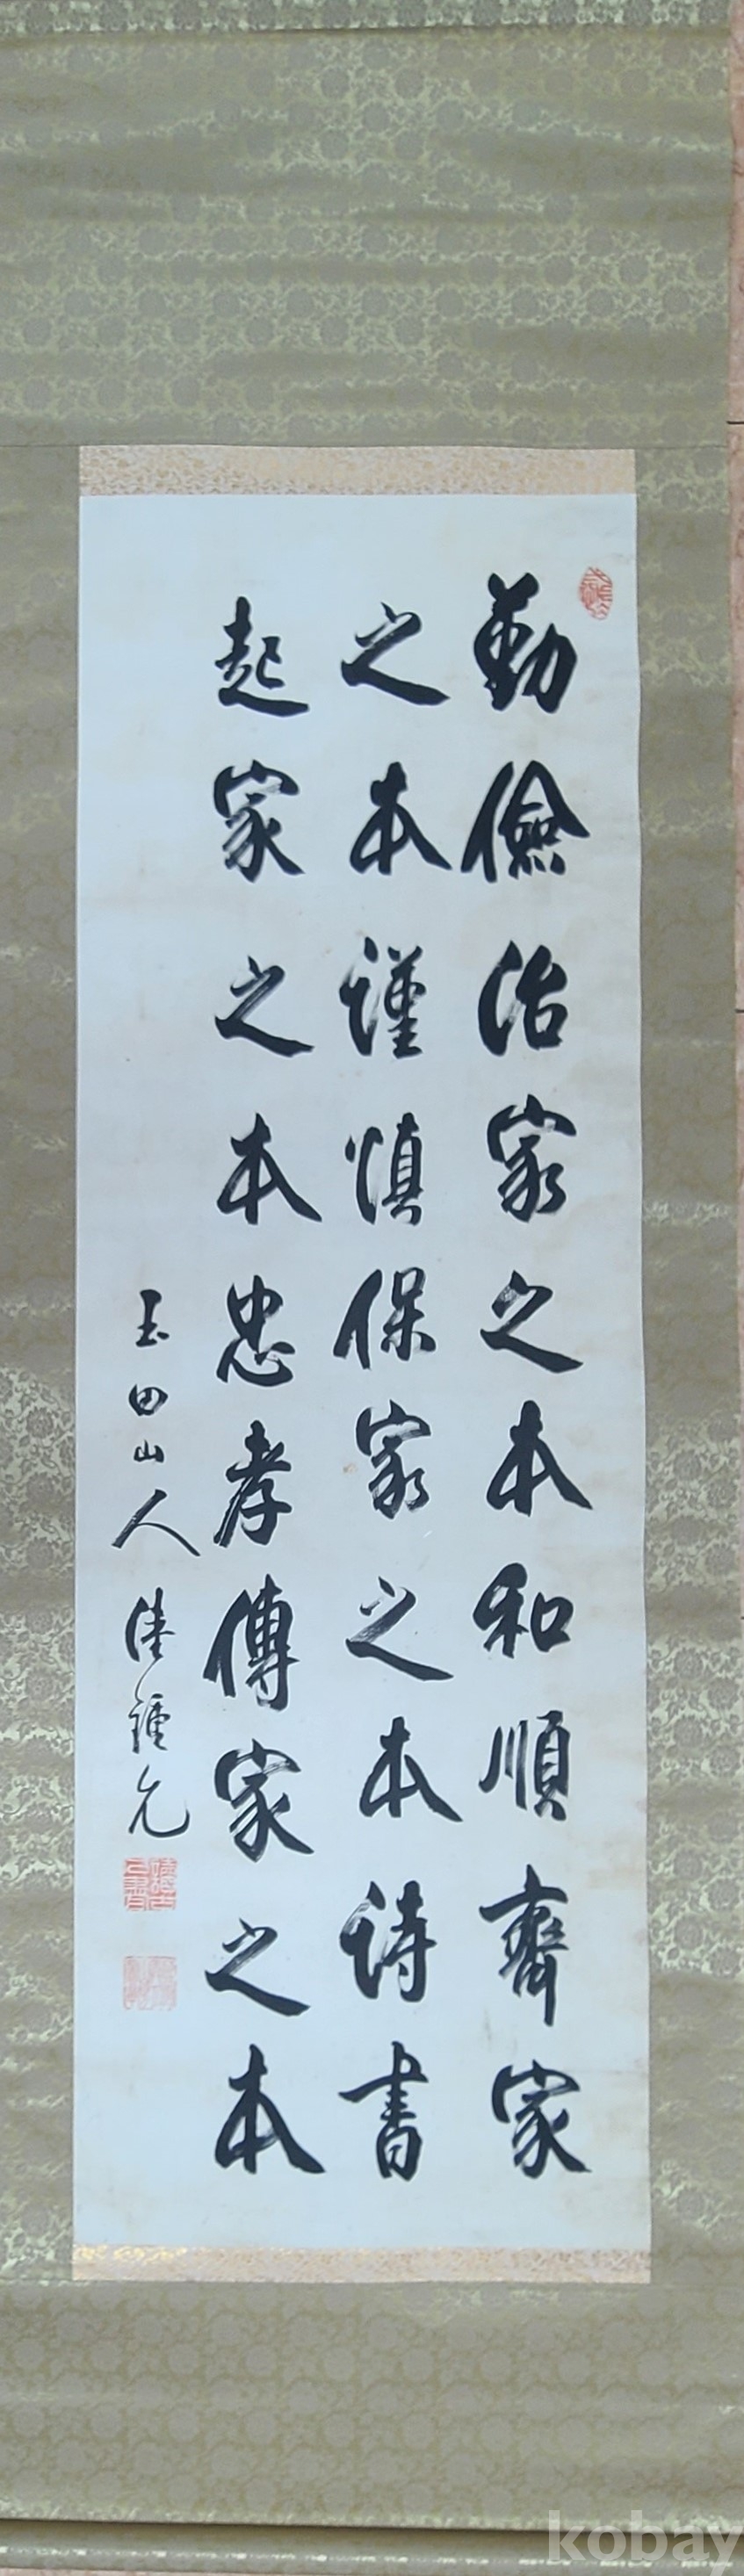 勤儉治家之本和順齊家
之本謹愼保家之本詩書
起家之本忠孝傳家之本
玉田山人陸鍾元
kobay